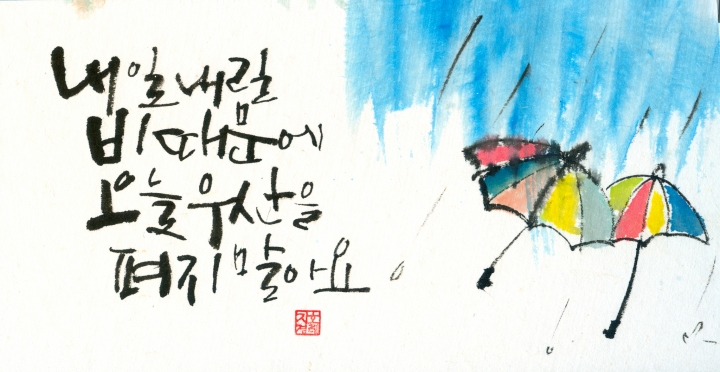 내일 내릴
비 때문에
오늘 우산을
펴지 말아요